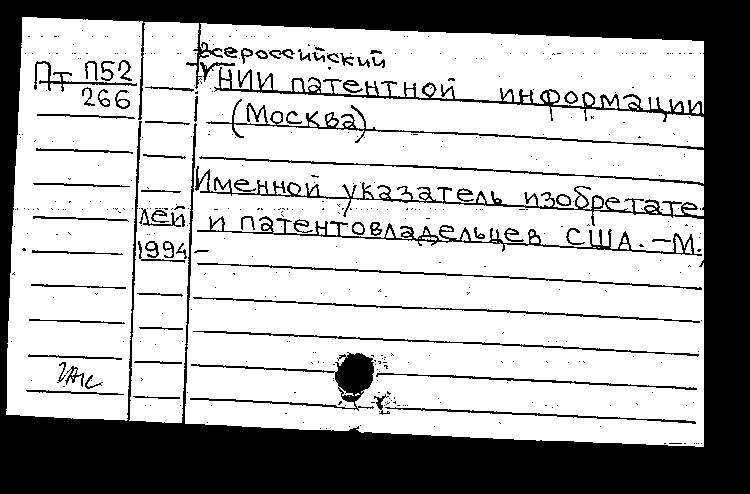 Всероссийский
Пт П52
266
НИИ патентной информации
(Москва).
Именной указатель изобретате
лей и патентовладельцев США. – М.,
1994 –